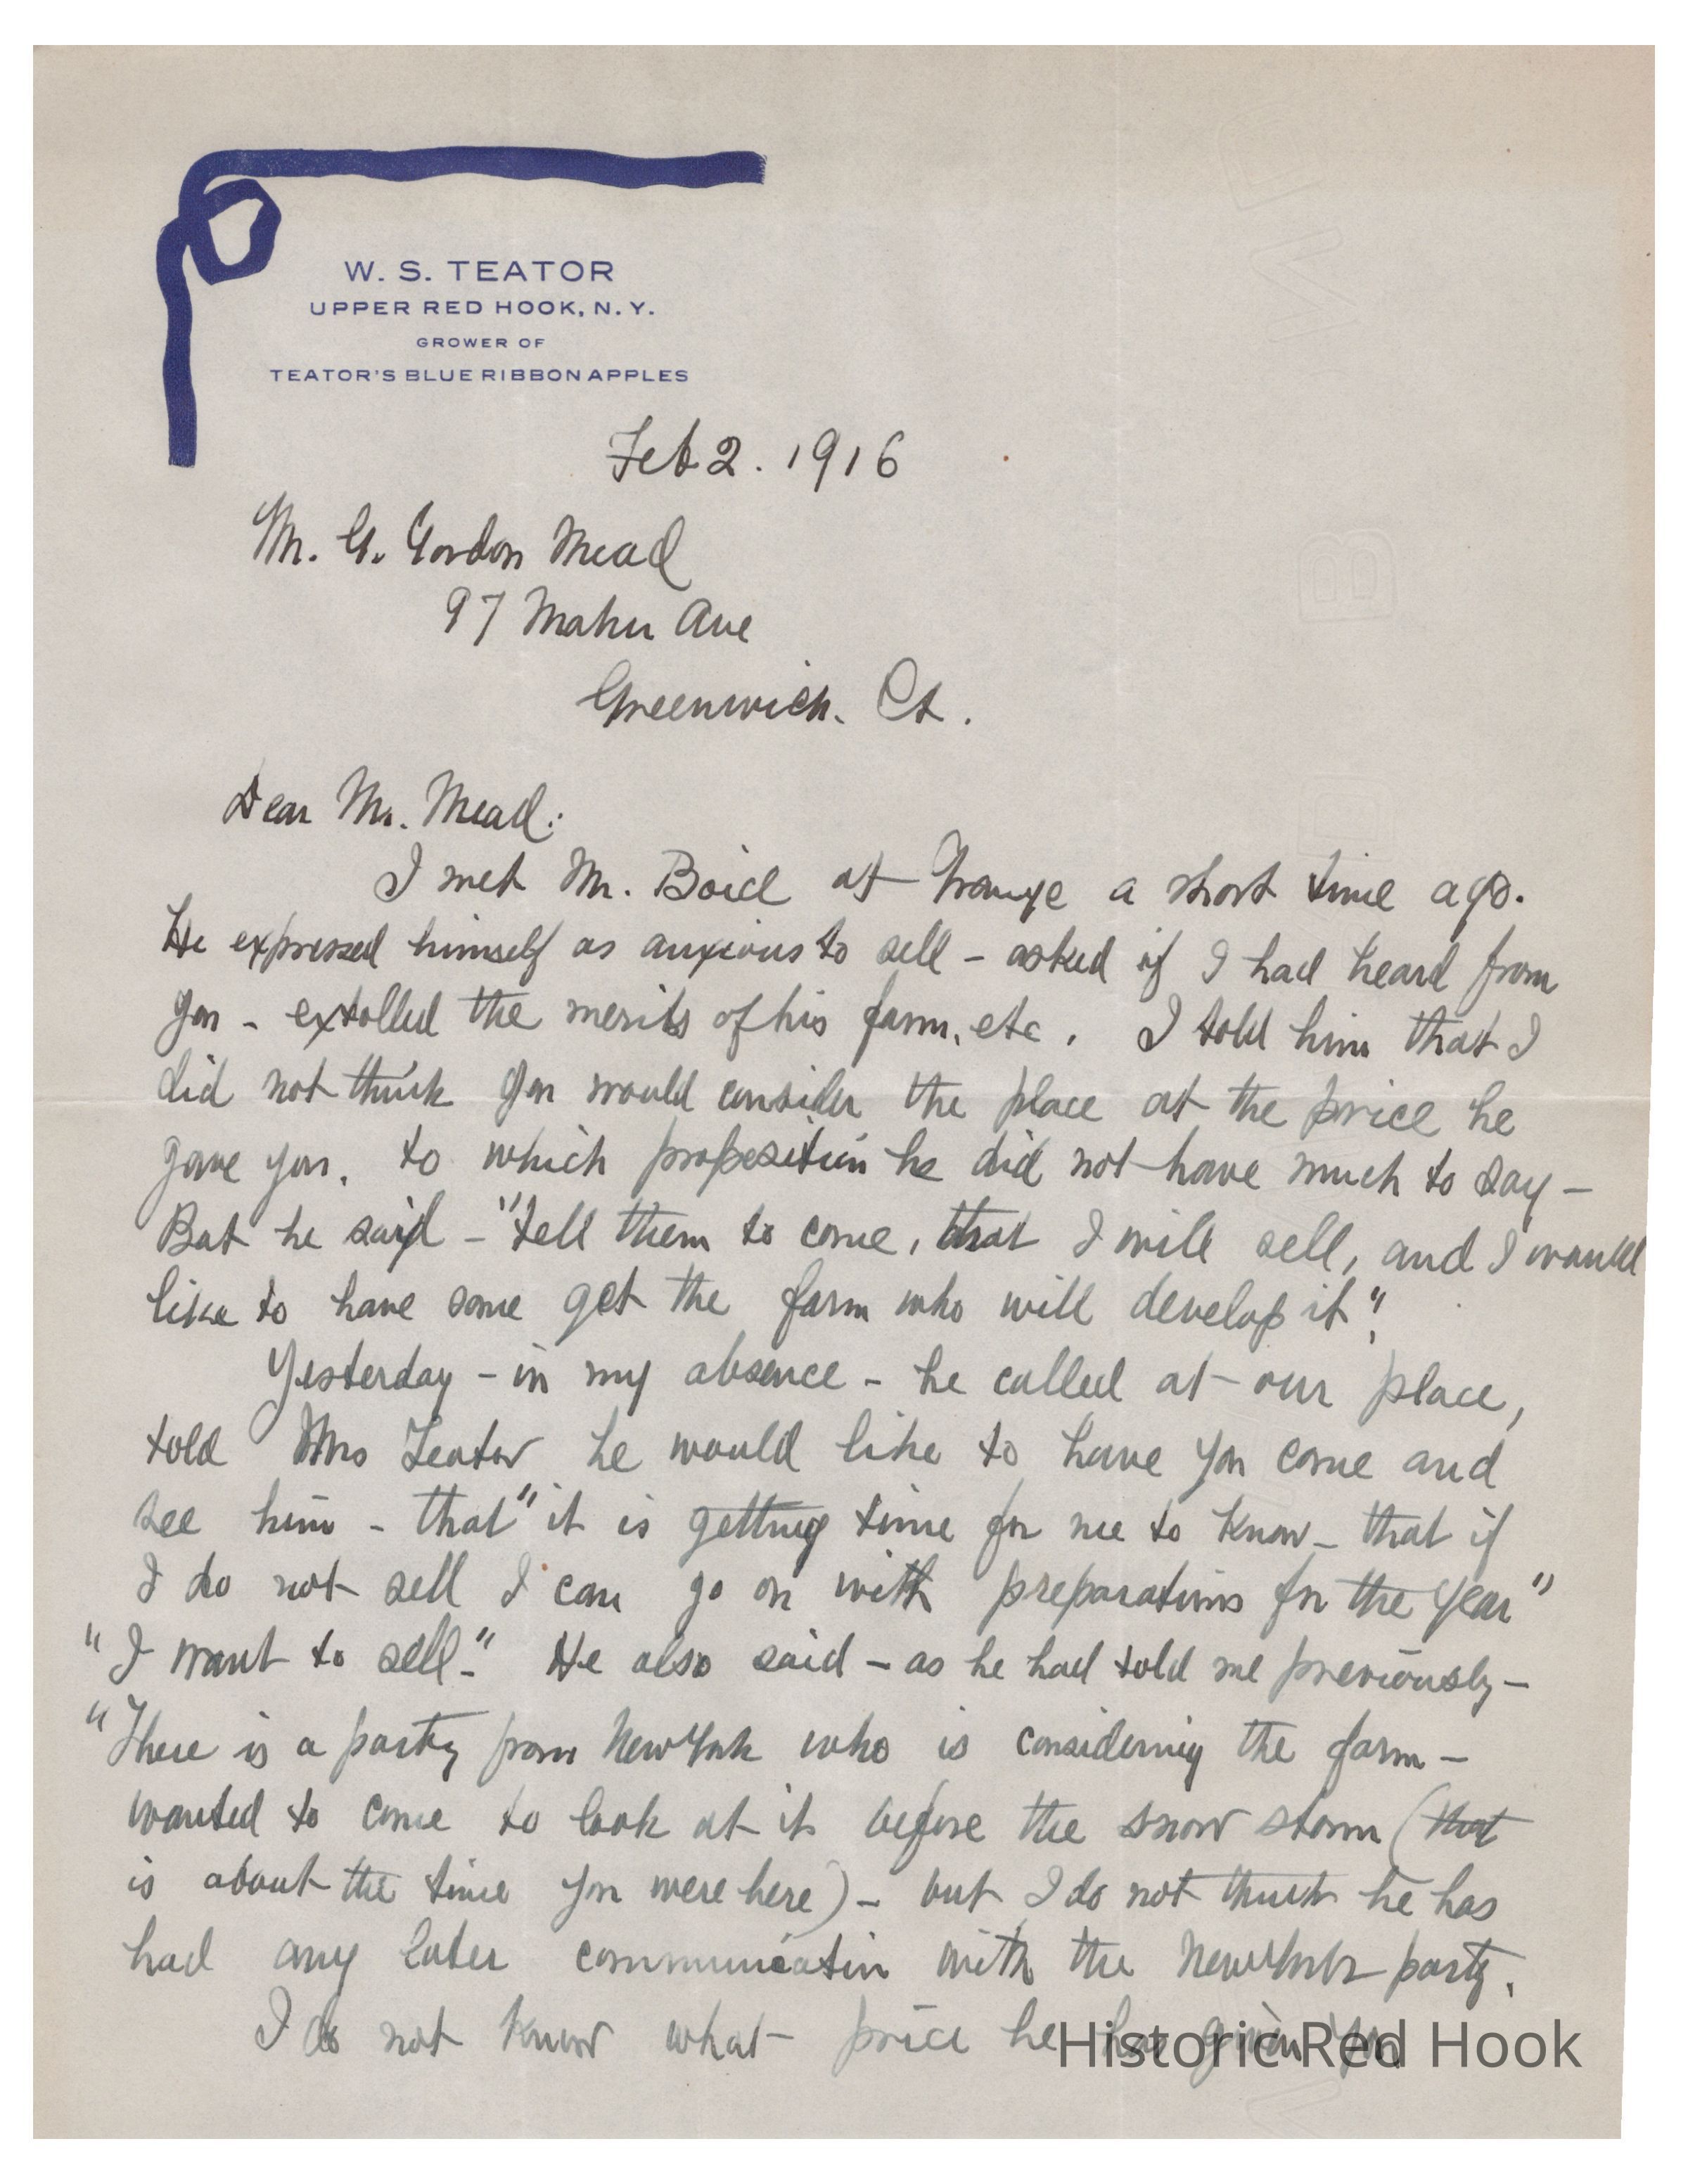 W. S. TEATOR
UPPER RED HOOK, N. Y.
GROWER OF
TEATOR'S BLUE RIBBON APPLES
Feb 2. 1916
Mr. G. Gordon Mead
97 Maher Ave
Greenwich. Ct.
Dear Mr. Mead:
I met Mr. Boice at Grange a short time ago.
He expressed himself as anxious to sell - asked if I had heard from
you - extolled the merits of his farm, etc. I told him that I
did not think you would consider the place at the price he
gave you, to which proposition he did not have much to say -
But he said - "tell them to come, that I will sell, and I would
like to have some get the farm who will develop it".
Yesterday - in my absence - he called at our place,
told Mrs Teator he would like to have you come and
see him - that "it is getting time for me to know - that if
I do not sell I can go on with preparations for the year"
"I want to sell." He also said - as he had told me previously -
"There is a party from New York who is considering the farm -
wanted to come to look at it before the snow storm (that
is about the time you were here) - but I do not think he has
had any later communication with the New York party.
I do not know what price he has given you
Historic Red Hook